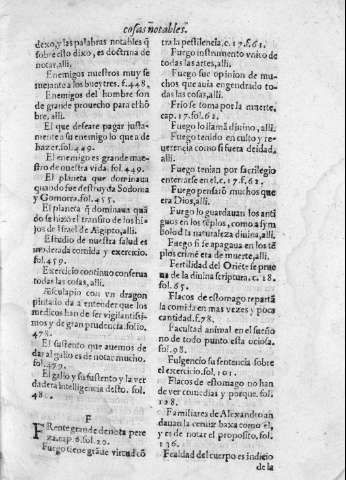 cosas ñotables.
dexo, y las palabras notables q̃
sobre esto dixo, es doctrina de
notar, alli.
Enemigos nuestros muy se
mejante a los bueytres. f. 448.
Enemigos del hombre son
de grande prouecho para el hō
bre, alli.
El que desease pagar justa-
mente a su enemigo lo que a de
hazer. fol. 449.
El enemigo es grande mae-
stro de nuestra vida. fol. 449.
El planeta que dominaua
quando fue destruyda Sodoma
y Gomorra. fol. 455.
El planeta q̃ dominaua quā
do se hizo el transito de los hi-
jos de Israel de Aigipto, alli.
Estudio de nuestra salud es
moderada comida y exercicio.
fol. 459.
Exercicio continuo conserua
todas las cosas, alli.
Esculapio con vn dragon
pintado da a entender que los
medicos han de ser vigilantissi-
mos y de gran prudencia. folio.
478.
El sustento que auemos de
dar al gallo es de notar mucho.
fol. 479.
El gallo y su sustento y la ver
dadera intelligencia desto. fol.
48
F
FRente grande denota pere
za. cap. 6. fol. 20.
Fuego tiene grāde virtud cō
tra la pestilencia. c. 17. f. 61.
Fuego instrumento vnico de
todas las artes, alli.
Fuego fue opinion de mu-
chos que auia engendrado to-
das las cosas, alli.
Frio se toma por la muerte,
cap. 17. fol. 62.
Fuego lo llamā diuino, alli.
Fuego tenido en culto y re-
uerencia como si fuera deidad,
alli.
Fuego tenian por sacrilegio
enterrarse en el. c. 17. f. 62.
Fuego pensarō muchos que
era Dios, alli.
Fuego lo guardauan los anti
guos en los tēplos, como a sym
bolo d la naturaleza diuina, alli.
Fuego si se apagaua en los tē
plos crimē era de muerte, alli.
Fertilidad del Oriēte se prue
na de la diuina scriptura. c. 18.
fol. 65.
Flacos de estomago repartā
la comida en mas vezes y poca
cantidad. f. 78.
Facultad animal en el sueño
no de todo punto esta ociosa.
fol. 98.
Fulgencio su sentencia sobre
el exercicio. fol. 101.
Flacos de estomago no han
de ver comedias y porque. fol.
128.
Familiares de Alexandro an
dauan la ceruiz baxa como el,
y es de notar el proposito. fol.
136.
Fealdad del cuerpo es indicio
de la